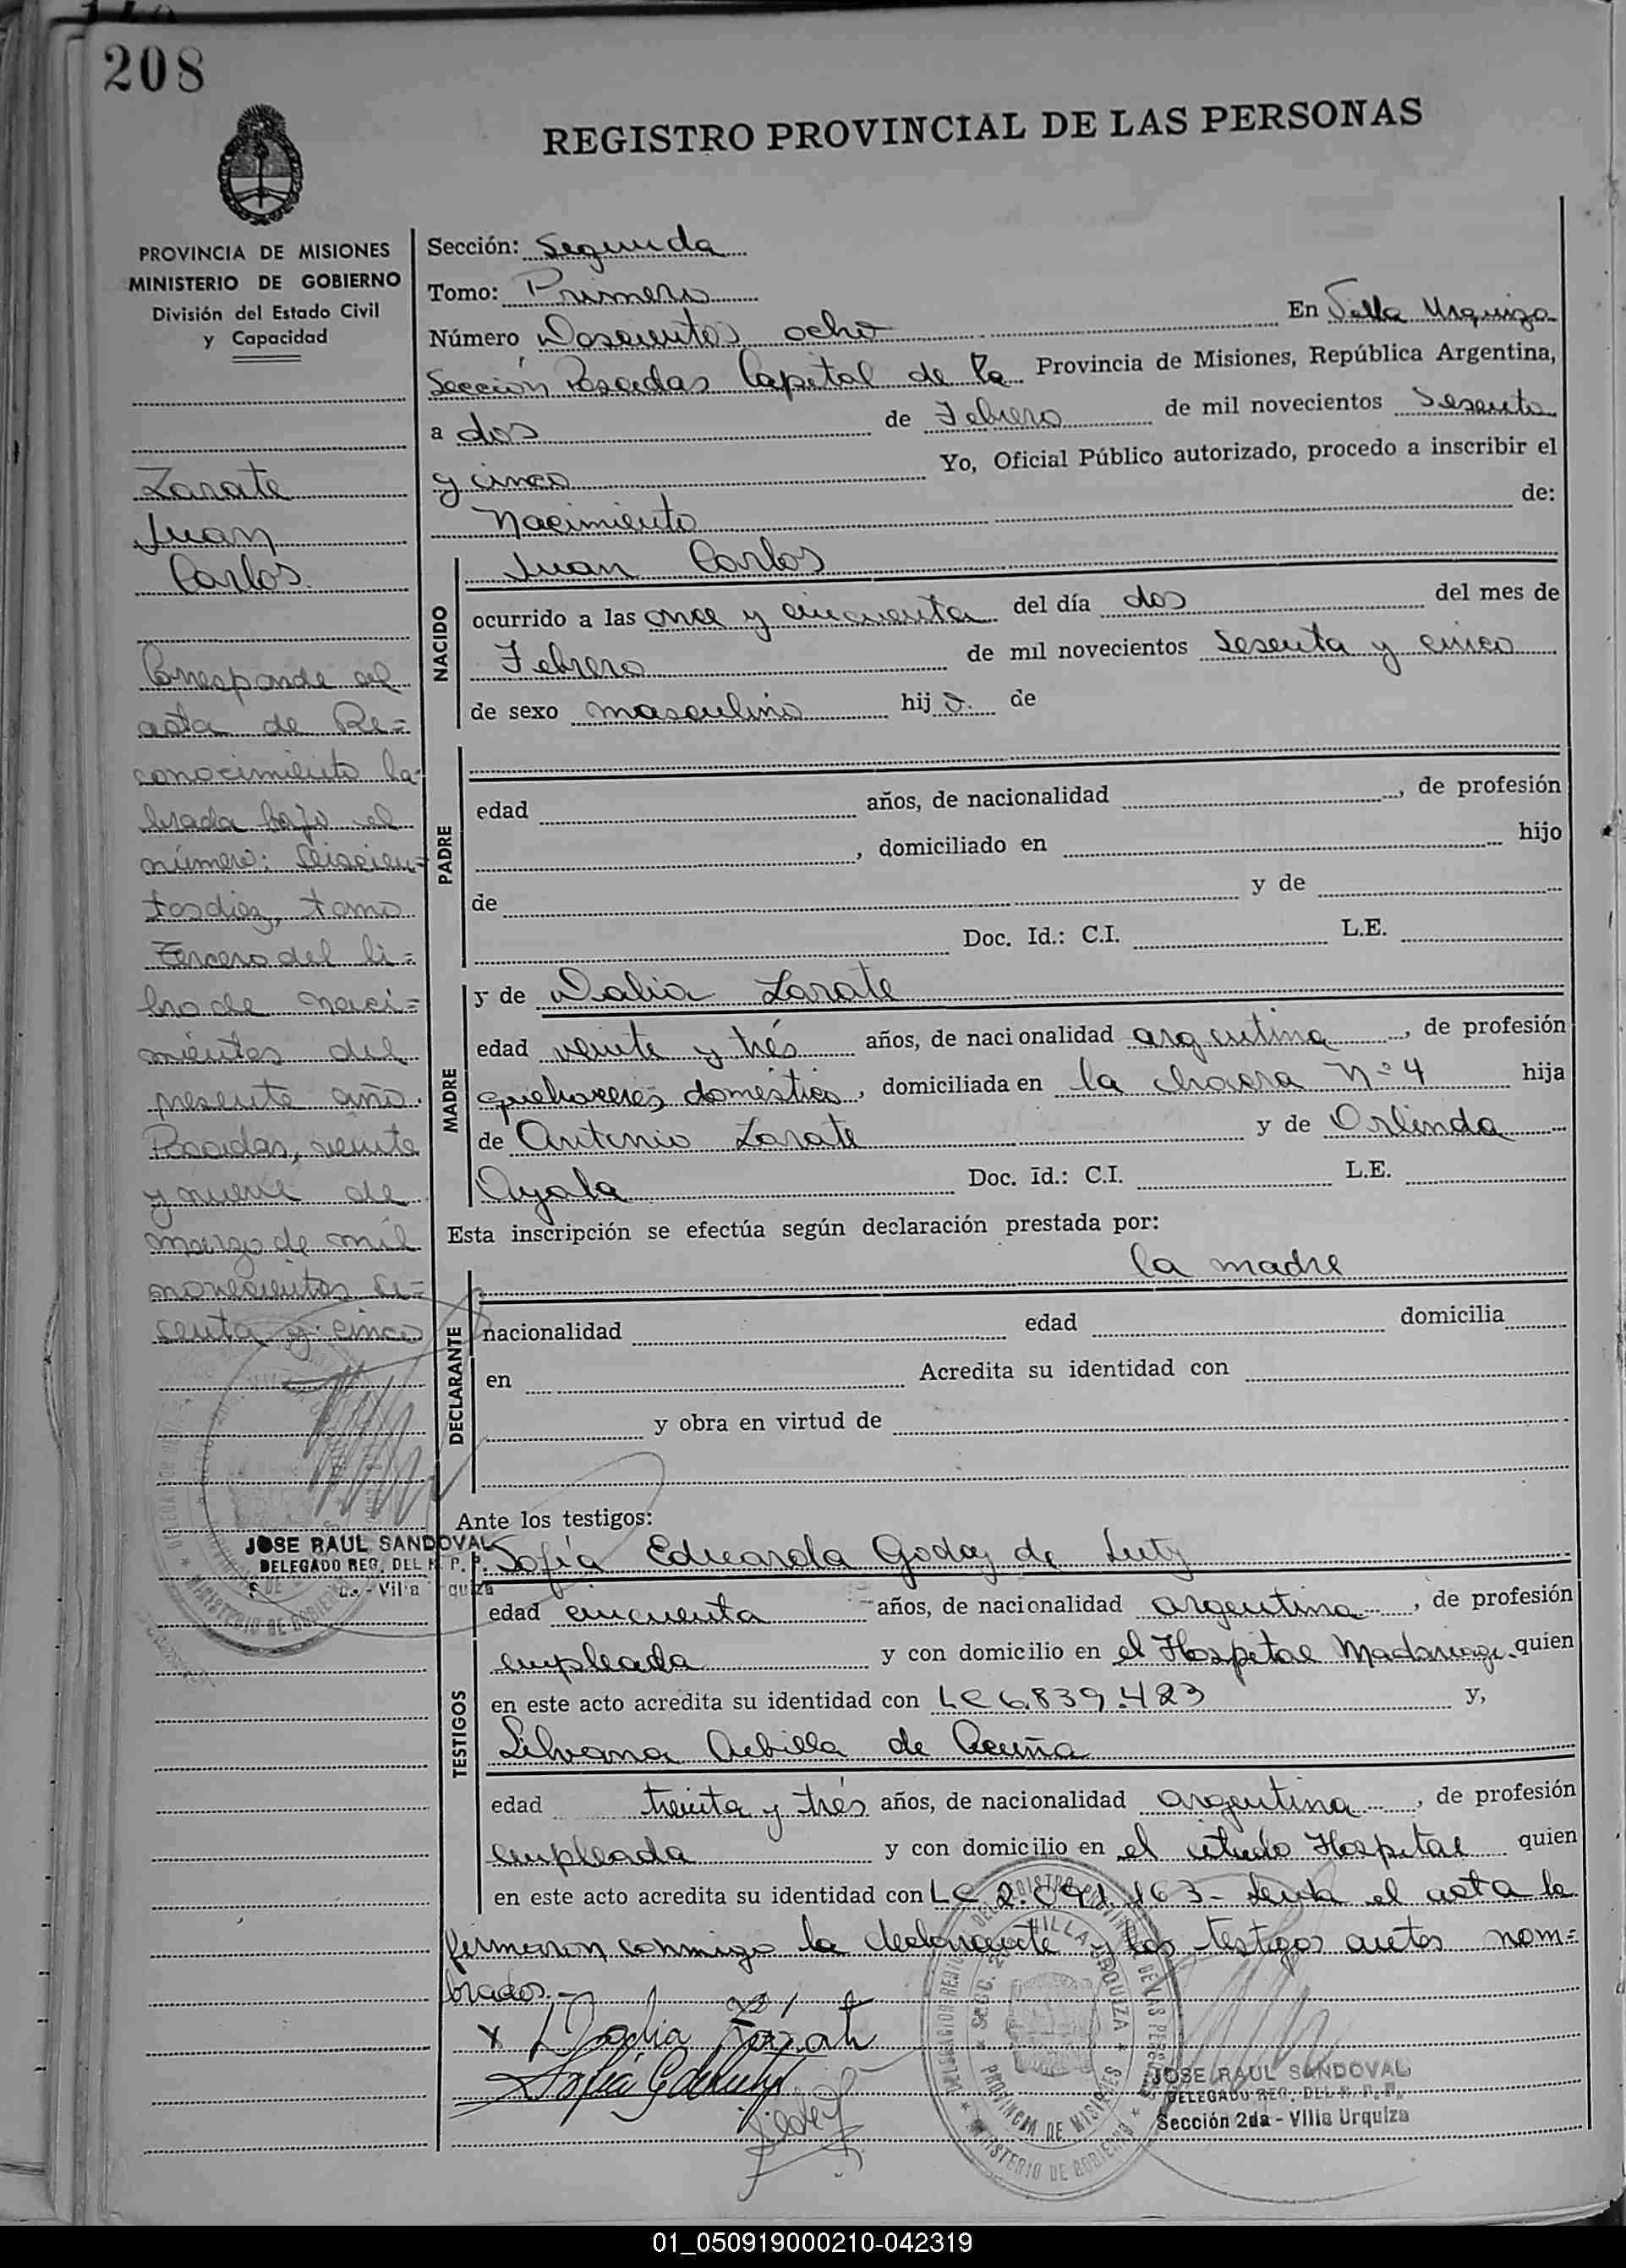 208
REGISTRO PROVINCIAL DE LAS PERSONAS
PROVINCIA DE MISIONES
MINISTERIO DE GOBIERNO
División del Estado Civil
y Capacidad
Zarate
Juan
Carlos
Corresponde al
acta de Re=
conocimiento la-
brada bajo el
número: Seiscien=
tosdiez, tomo
tercero del li=
bro de naci=
mientos del
presente año.
Posadas, veinte
y nueve de
marzo de mil
novecientos se=
senta y cinco
JOSE RAUL SANDOVAL
DELEGADO REG. DEL R. P. P.
Sección: Segunda
Tomo: Primero
Número Doscientos ocho En Villa Urquiza
Sección Posadas Capital de la Provincia de Misiones, República Argentina,
a dos de Febrero de mil novecientos Sesenta
y cinco Yo, Oficial Público autorizado, procedo a inscribir el
Nacimiento de:
NACIDO
Juan Carlos
ocurrido a las once y cincuenta del día dos del mes de
Febrero de mil novecientos Sesenta y cinco
de sexo masculino hijo de
PADRE
edad años, de nacionalidad , de profesión
, domiciliado en hijo
de y de
Doc. Id.: C.I. L.E.
MADRE
y de Dalia Zarate
edad veinte y trés años, de nacionalidad argentina, de profesión
quehaceres domésticos, domiciliada en la chacra Nº 4 hija
de Antonio Zarate y de Orlinda
Ayala Doc. Id.: C.I. L.E.
Esta inscripción se efectúa según declaración prestada por:
la madre
DECLARANTE
nacionalidad edad domicilia
en Acredita su identidad con
y obra en virtud de
Ante los testigos:
TESTIGOS
Sofía Eduarda Godoy de Lutz
edad cincuenta años, de nacionalidad argentina, de profesión
empleada y con domicilio en el Hospital Madariaga quien
en este acto acredita su identidad con LC 6.839.483 y,
Silvana Arbilla de Acuña
edad treinta y trés años, de nacionalidad argentina, de profesión
empleada y con domicilio en el citado Hospital quien
en este acto acredita su identidad con LC 2.091.163- Leida el acta la
firmaron conmigo la declarante y los testigos antes nom=
brados.-
x Dalia Zarate
JOSE RAUL SANDOVAL
DELEGADO REG. DEL R. P. P.
Sección 2da - Villa Urquiza
01_050919000210-042319